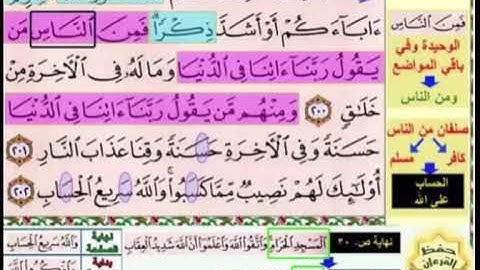 ءَابَآءَكُمْ أَوْ أَشَدَّ ذِكْرًا فَمِنَ ٱلنَّاسِ مَن
يَقُولُ رَبَّنَآ ءَاتِنَا فِى ٱلدُّنْيَا وَمَا لَهُۥ فِى ٱلْءَاخِرَةِ مِنْ
خَلَٰقٍ ٢٠٠ وَمِنْهُم مَّن يَقُولُ رَبَّنَآ ءَاتِنَا فِى ٱلدُّنْيَا
حَسَنَةً وَفِى ٱلْءَاخِرَةِ حَسَنَةً وَقِنَا عَذَابَ ٱلنَّارِ ٢٠١
أُو۟لَٰٓئِكَ لَهُمْ نَصِيبٌ مِّمَّا كَسَبُوا۟ وَٱللَّهُ سَرِيعُ ٱلْحِسَابِ ٢٠٢
فَمِنَ ٱلنَّاسِ
الوحيدة وفي
باقي المواضع
ومن الناس
صنفان من الناس
كافر مسلم
الحساب
على الله
نهاية ص. ٣٠
ٱلْمَسْجِدِ ٱلْحَرَامِ وَٱتَّقُوا۟ ٱللَّهَ وَٱعْلَمُوٓا۟ أَنَّ ٱللَّهَ شَدِيدُ ٱلْعِقَابِ
نهاية
الصفحة
وَٱللَّهُ سَرِيعُ ٱلْحِسَابِ
حفظ
القرءان